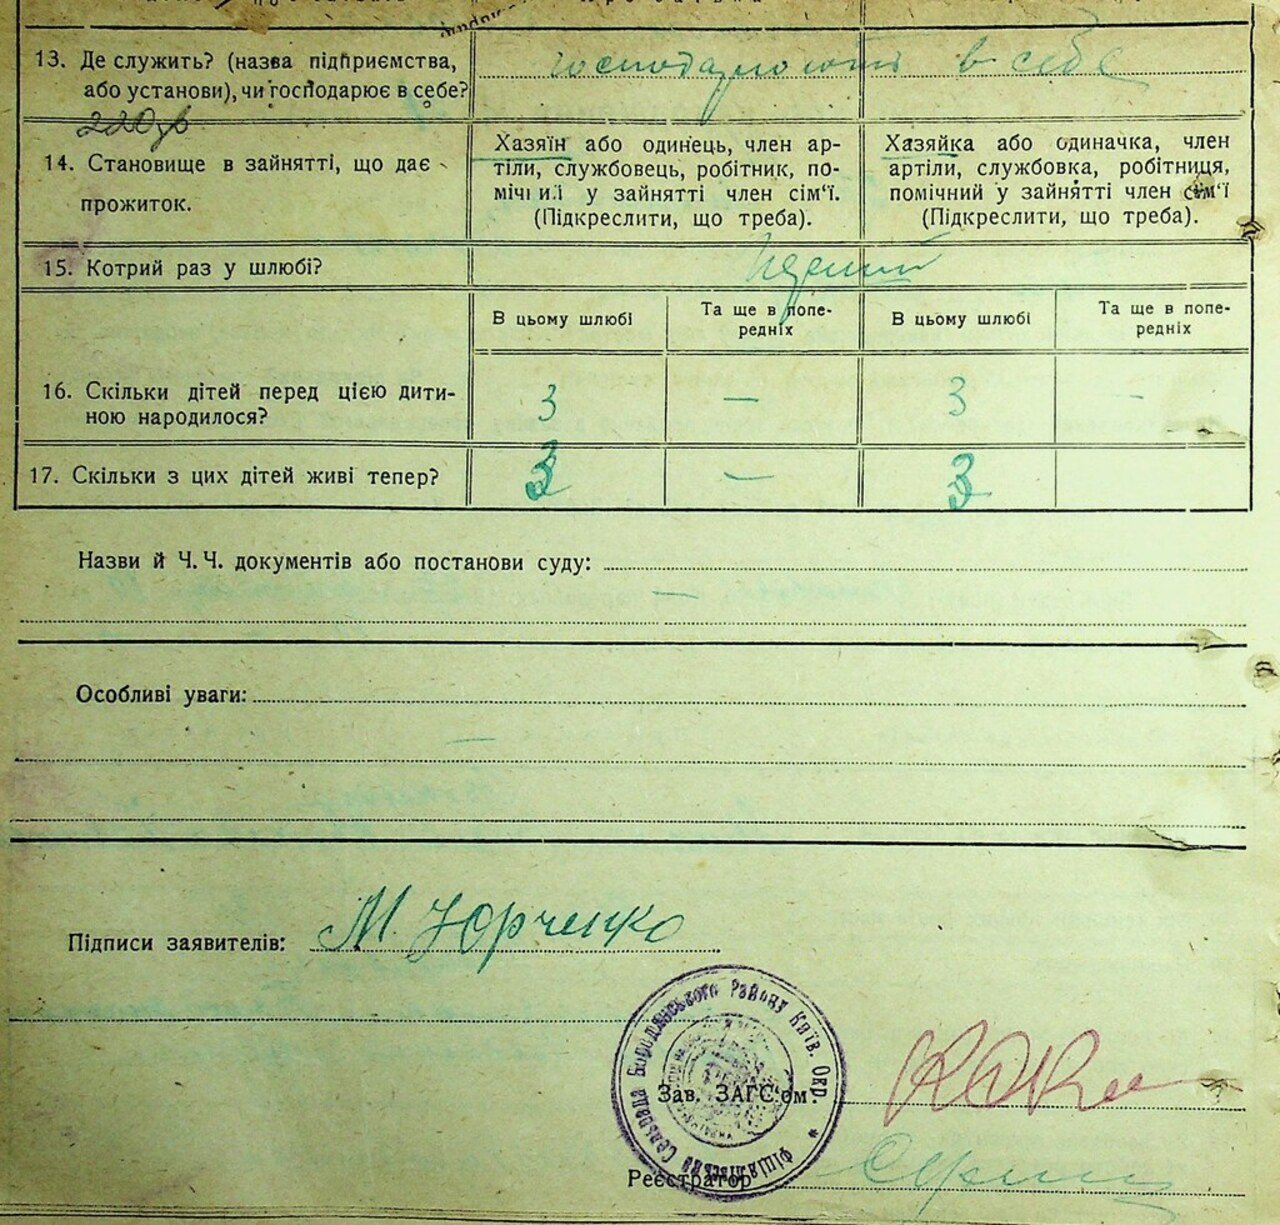 13. Де служить? (назва підприємства,
або установи), чи господарює в себе?
господарюють в себе
14. Становище в зайнятті, що дає
прожиток.
Хазяїн або одинець, член ар-
тіли, службовець, робітник, по-
мічний у зайнятті член сім'ї.
(Підкреслити, що треба).
Хазяйка або одиначка, член
артіли, службовка, робітниця,
помічний у зайнятті член сім'ї
(Підкреслити, що треба).
15. Котрий раз у шлюбі?
перший
В цьому шлюбі
Та ще в попе-
редніх
В цьому шлюбі
Та ще в попе-
редніх
16. Скільки дітей перед цією дити-
ною народилося?
3 — 3 —
17. Скільки з цих дітей живі тепер?
3 — 3
Назви й Ч.Ч. документів або постанови суду:
—
Особливі уваги:
—
Підписи заявителів: М. Юрченко
Сельрада Бородянського Району Київ. Окр. *
Зав. ЗАГС'ом
Реєстратор